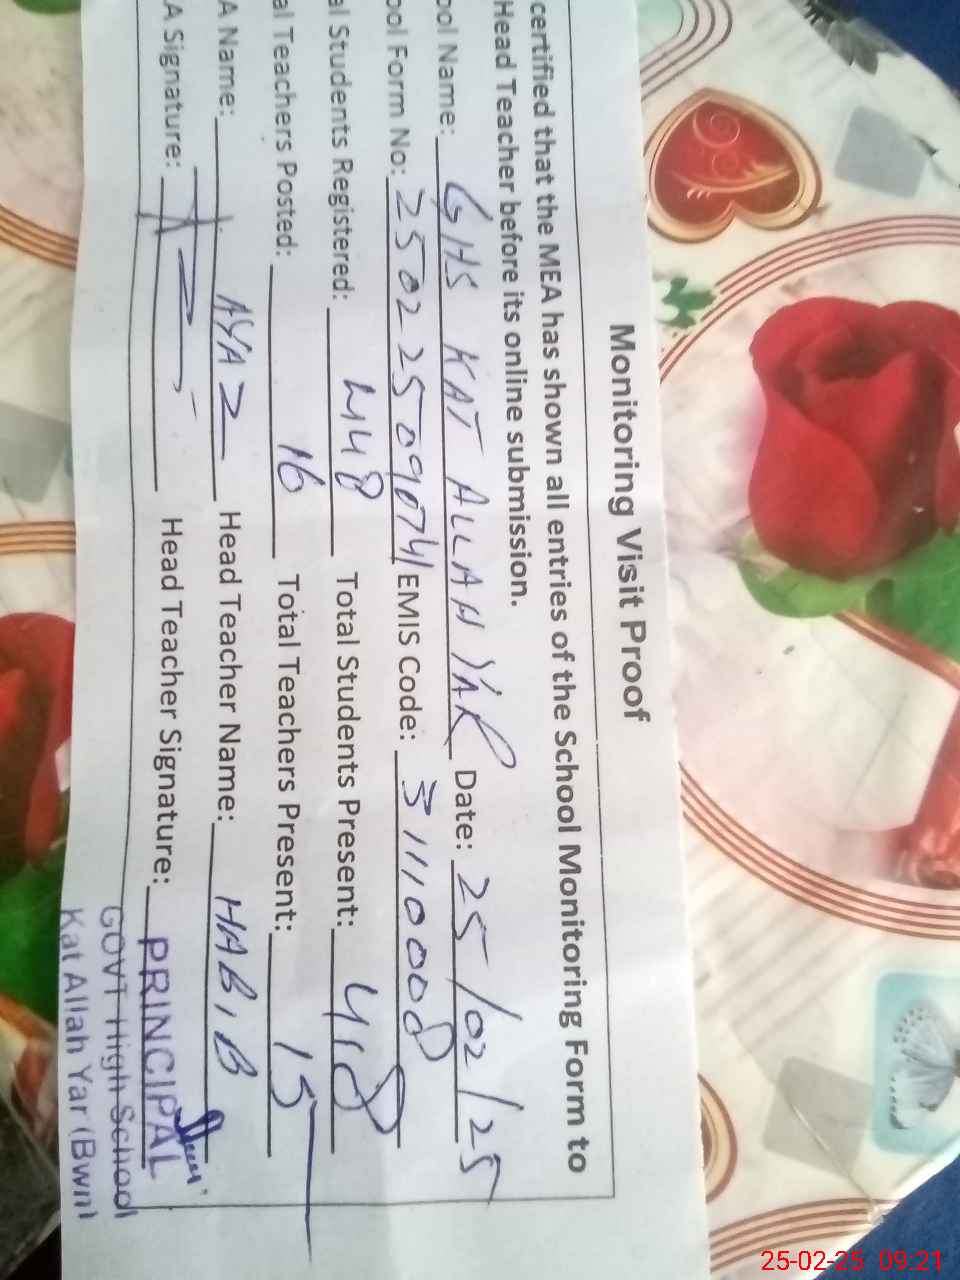 Monitoring Visit Proof
certified that the MEA has shown all entries of the School Monitoring Form to
Head Teacher before its online submission.
ool Name: GHS KAT ALLAH YAR Date: 25/02/25
ool Form No: 25022509074 EMIS Code: 31110008
al Students Registered: 448 Total Students Present: 418
al Teachers Posted: 16 Total Teachers Present: 15
A Name: AYAZ Head Teacher Name: HABIB
A Signature: Head Teacher Signature:
PRINCIPAL
GOVT High School
Kat Allah Yar (Bwn)
25-02-25 09:21